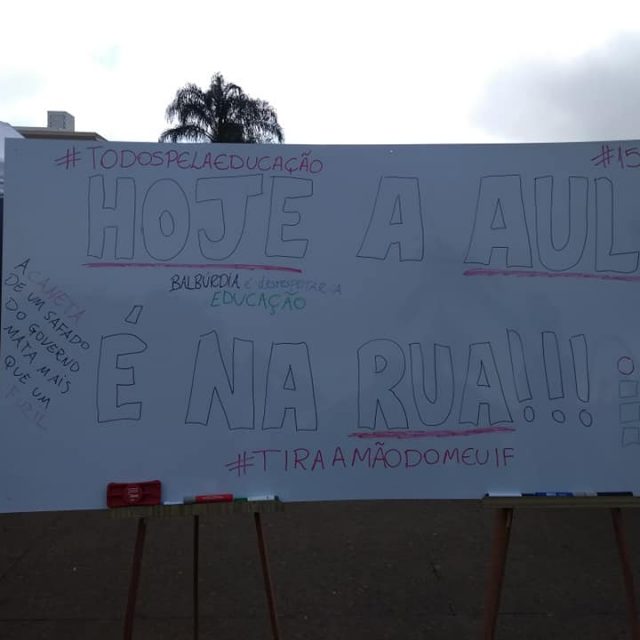 #TODOSPELAEDUCAÇÃO
#15
HOJE A AUL
BALBÚRDIA É DESRESPEITAR A
EDUCAÇÃO
A CANETA
DE UM SAFADO
DO GOVERNO
MATA MAIS
QUE UM
FUZIL
É NA RUA!!!
#TIRAAMÃODOMEUIF